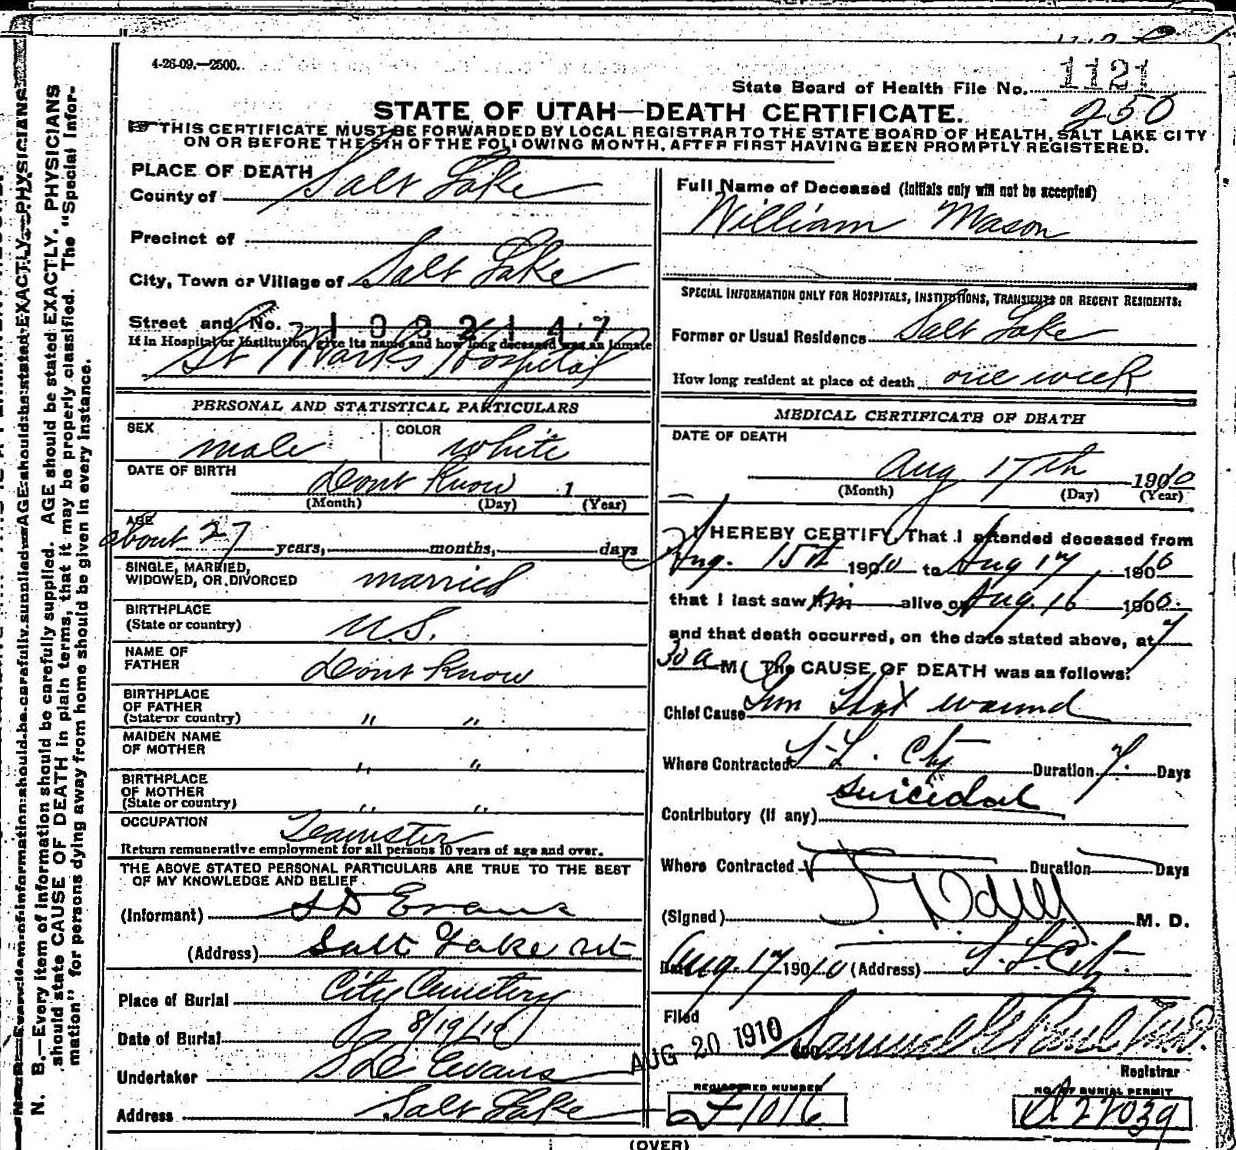 4-26-09.—2500.
State Board of Health File No. 1121
250
STATE OF UTAH—DEATH CERTIFICATE.
THIS CERTIFICATE MUST BE FORWARDED BY LOCAL REGISTRAR TO THE STATE BOARD OF HEALTH, SALT LAKE CITY
ON OR BEFORE THE 5TH OF THE FOLLOWING MONTH, AFTER FIRST HAVING BEEN PROMPTLY REGISTERED.
PLACE OF DEATH
County of Salt Lake
Precinct of
City, Town or Village of Salt Lake
Street and No. 1022147
If in Hospital or Institution, give its name and how long deceased was an inmate
St Marks Hospital
PERSONAL AND STATISTICAL PARTICULARS
SEX male COLOR white
DATE OF BIRTH Dont Know 1
(Month) (Day) (Year)
AGE about 27 years, months, days
SINGLE, MARRIED,
WIDOWED, OR DIVORCED married
BIRTHPLACE
(State or country) U.S.
NAME OF
FATHER Dont Know
BIRTHPLACE
OF FATHER
(State or country) " "
MAIDEN NAME
OF MOTHER " "
BIRTHPLACE
OF MOTHER
(State or country) " "
OCCUPATION Teamster
Return remunerative employment for all persons 10 years of age and over.
THE ABOVE STATED PERSONAL PARTICULARS ARE TRUE TO THE BEST
OF MY KNOWLEDGE AND BELIEF
(Informant) S D Evans
(Address) Salt Lake Ut
Place of Burial City Cemetery
Date of Burial 8/19/10
Undertaker S D Evans
Address Salt Lake
Full Name of Deceased (Initials only will not be accepted)
William Mason
SPECIAL INFORMATION ONLY FOR HOSPITALS, INSTITUTIONS, TRANSIENTS OR RECENT RESIDENTS:
Former or Usual Residence Salt Lake
How long resident at place of death one week
MEDICAL CERTIFICATE OF DEATH
DATE OF DEATH
Aug 17th 1910
(Month) (Day) (Year)
I HEREBY CERTIFY, That I attended deceased from
Aug. 15th 1910 to Aug 17 1910
that I last saw him alive on Aug. 16 1910.
and that death occurred, on the date stated above, at 7
30 a M. The CAUSE OF DEATH was as follows:
Chief Cause Gun Shot wound
Where Contracted S. L. City Duration 7. Days
suicidal
Contributory (if any)
Where Contracted Duration Days
(Signed) M. D.
Date Aug. 17 1910 (Address) S. L. City.
Filed
AUG 20 1910 Samuel G Paul M.D.
Registrar
REGISTERED NUMBER
F1016
NO. OF BURIAL PERMIT
A 27039
(OVER)
N. B.—Every item of information should be carefully supplied. AGE should be stated EXACTLY. PHYSICIANS
should state CAUSE OF DEATH in plain terms, that it may be properly classified. The "Special Infor-
mation" for persons dying away from home should be given in every instance.